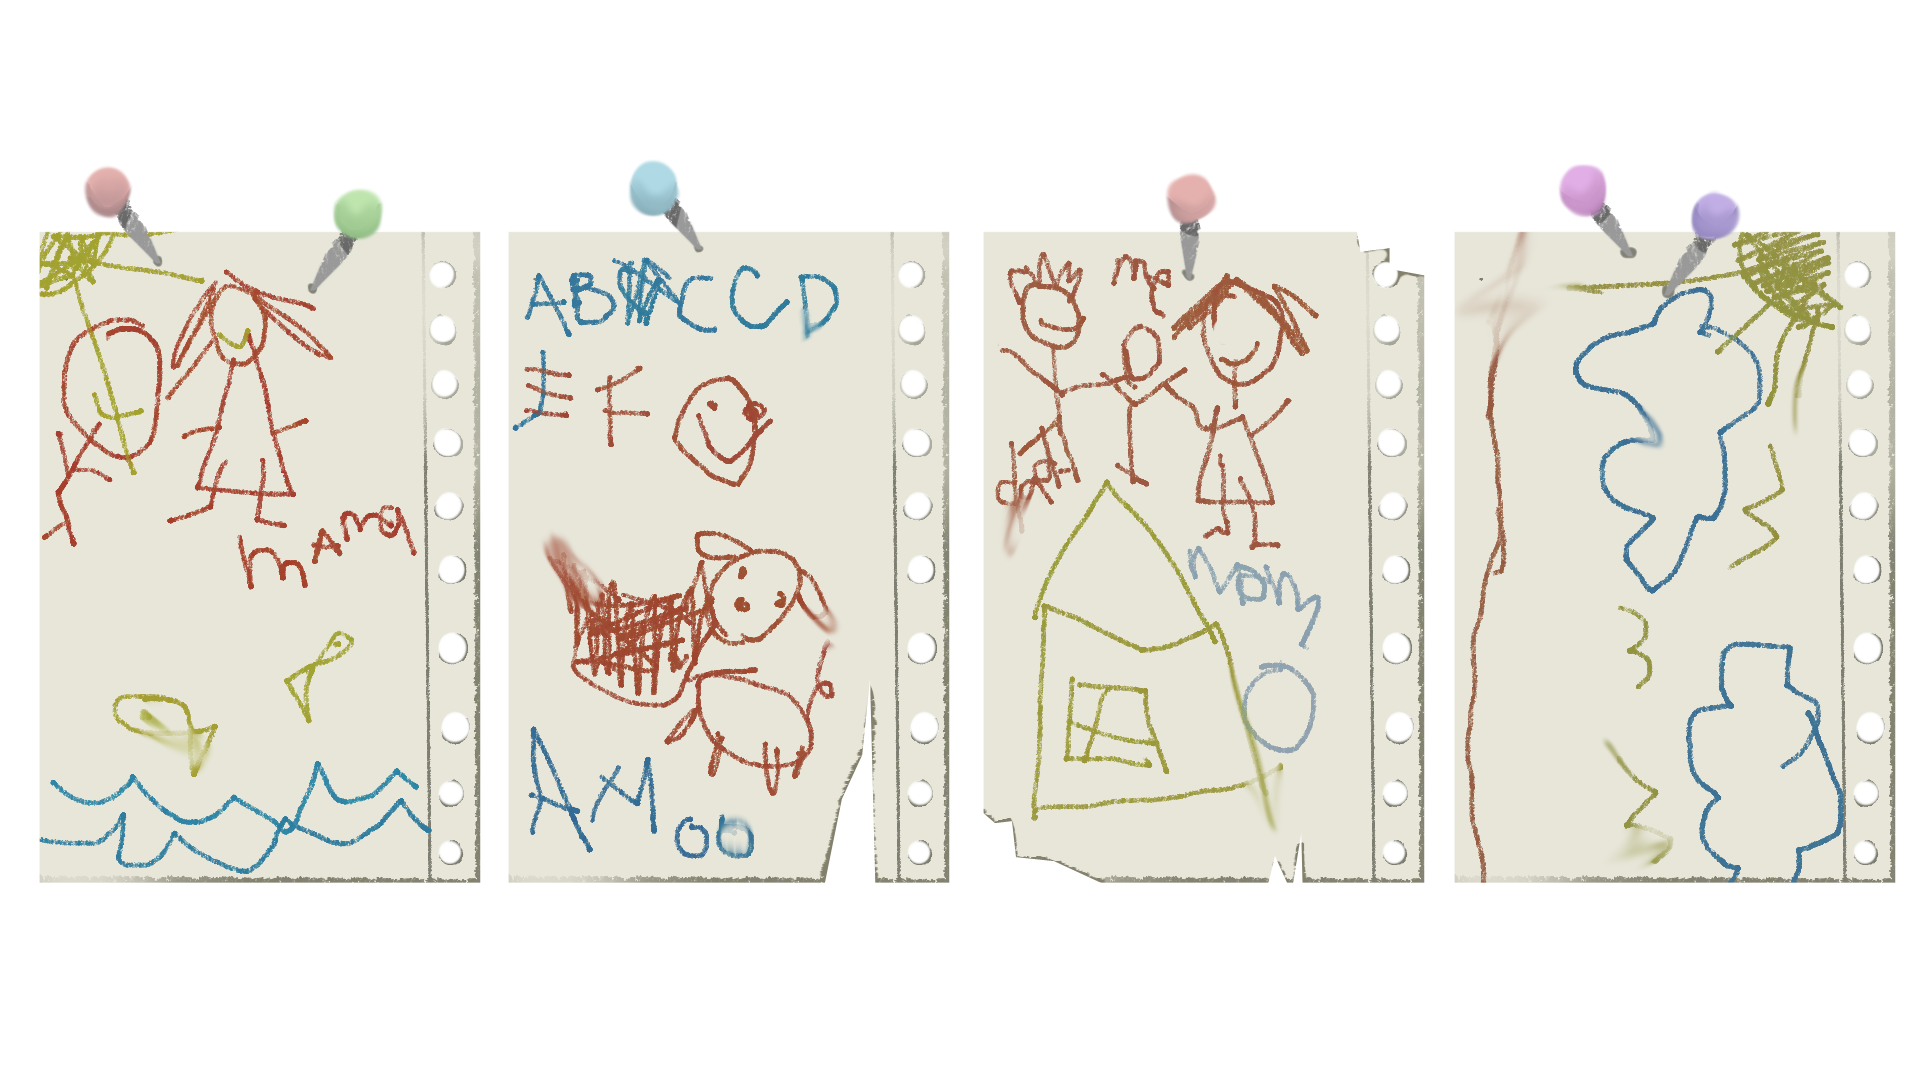 mAmq
ABCCD
EF
AMoo
me
dAd
mom